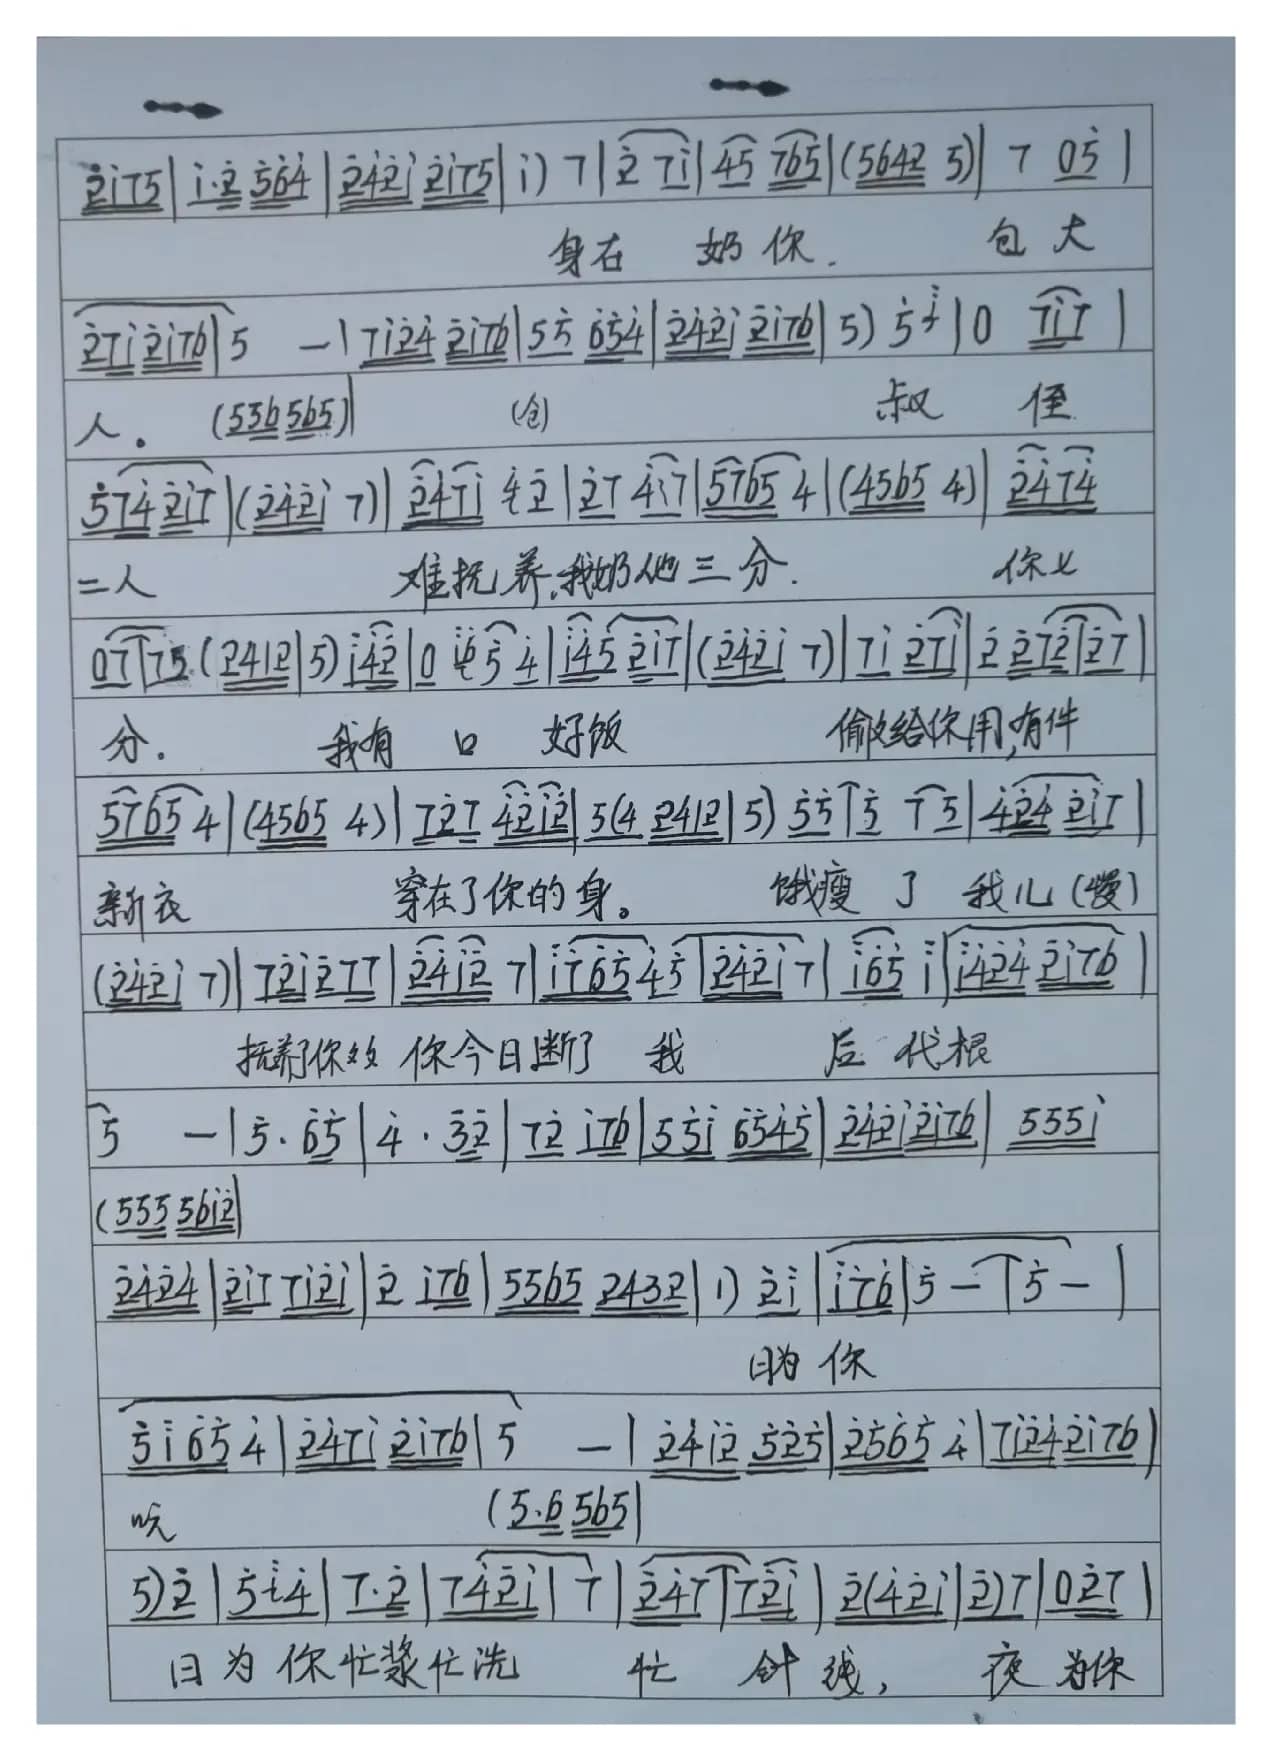 2̇i̇75|i̇·2̇ 5̇6̇4̇|2̇4̇2̇i̇ 2̇i̇75|i̇) 7|2̇ 7i̇|4̇5̇ 7̇6̇5̇|(5642 5)| 7 05̇|
身在 奶你. 包大
2̇7i̇ 2̇i̇76|5 —|7i̇2̇4̇ 2̇i̇76|55̇ 6̇5̇4̇|2̇4̇2̇i̇ 2̇i̇76|5) 5̇ 4̇|0 7i̇7|
人. (536 565)| (仓) 叔 侄
5̇74̇ 2̇i̇7|(2̇4̇2̇i̇ 7)|2̇4̇7i̇ 4̇2̇|2̇7 4̇i̇7|5̇7̇6̇5̇ 4|(4565 4)|2̇4̇74̇
二人 难抚养,我奶他三分. 你父
07|75.(2412|5)i̇4̇2̇|0 i̇6̇5̇ 4̇|i̇4̇5̇ 2̇i̇7|(2̇4̇2̇i̇ 7)|7i̇ 2̇7i̇|2̇ 2̇72̇|2̇7|
分. 我有 口 好饭 偷给你用,有件
5̇7̇6̇5̇ 4|(4565 4)|72̇7 4̇2̇i̇2̇|5(4 2412|5) 5̇5̇|5̇ 75̇|4̇2̇4̇ 2̇i̇7|
新衣 穿在了你的身。 饿瘦 了 我儿(慢)
(2̇4̇2̇i̇ 7)|72̇i̇2̇77|2̇4̇i̇2̇ 7|i̇7̇6̇5̇ 4̇5̇|2̇4̇2̇i̇ 7|i̇6̇5̇ i̇|i̇4̇2̇4̇ 2̇i̇76|
抚养了你 你今日断了 我 后 代根
5̇ —|5̇·6̇5̇|4̇·3̇2̇|72̇ i̇76|55̇i̇ 6̇5̇4̇5̇|2̇4̇2̇i̇2̇i̇76|555i̇
(555 56i̇2̇|
2̇4̇2̇4̇|2̇i̇7 7i̇2̇i̇|2̇ i̇76|5565 2432|1) 2̇i̇|i̇76|5̇ —|5̇ —|
日为 你
5̇i̇6̇5̇ 4̇|2̇4̇7i̇ 2̇i̇76|5 —|2̇4̇i̇2̇ 5̇2̇5̇|2̇5̇6̇5̇ 4̇|7i̇2̇4̇2̇i̇76)
(5·6 565|
5)2̇|5̇i̇4̇|7·2̇|74̇2̇i̇|7|2̇4̇7|72̇i̇|2̇(4̇2̇i̇|2̇)7|02̇7|
日为你忙浆忙洗 忙 针 线, 夜 为你